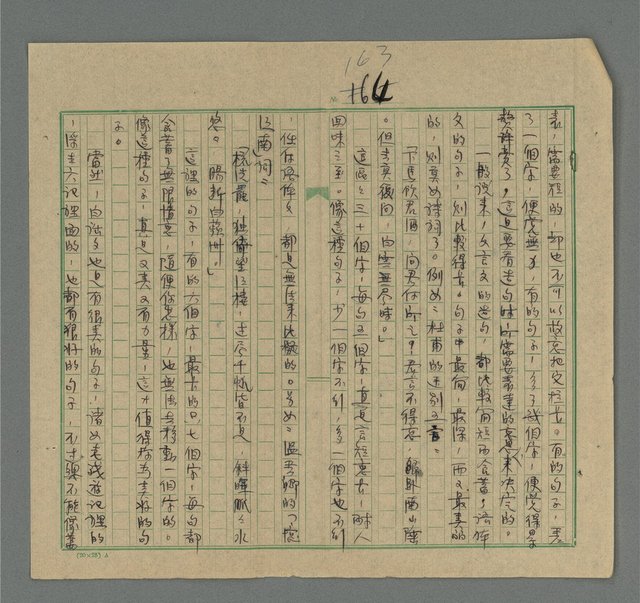 163
164
表,需要短的,却也不可以故意把它拉長。有的句子,丟
了一個字,便成無力,有的句子,多了幾個字,便覺得累
贅。這是要看造句時所需要表達的意來決定的。
一般說來,文言文的造句,都比較簡短而含蓄,語体
文的句子,則比較得長。句子中最簡,最深,而又最美的
的,則要如詩詞了。例如:杜甫的送別之言。
「下馬飲君酒,問君何所之?君言不得意,歸臥南山陲
。但去莫復問,白雲無盡時。」
這區區三十個字,每句五個字,真是言短意長,耐人
回味之至。像這種句子,少一個字不行,多一個字也不行
,任何語体文,都是無法來比擬的。另如:溫飛卿的「憶
江南詞」:
「梳洗罷,獨倚望江樓,過盡千帆皆不是,斜暉脈脈水
悠悠。腸斷白蘋洲。」
這裡的句子,有的六個字,最長的只七個字,每句都
含蓄了無限情意,隨便你怎樣,也無法去移動一個字的。
像這種句子,真是又美又有力量,這才值得稱為美好的句
子。
當然,白話文也是有很美的句子,諸如老殘遊記裡的
,浮生六記裡面的,也都有很好的句子,不過總不能像舊
(20×28) A